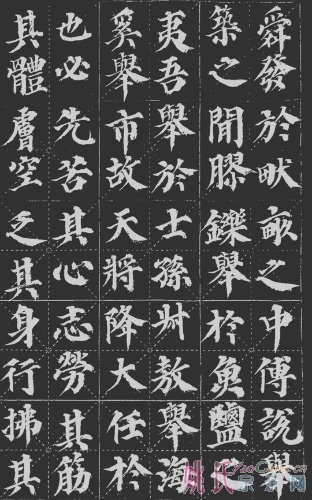 舜發於畎畝之中傅說舉
築之間膠鑠舉於魚鹽
夷吾舉於士孫叔敖舉海
奚舉市故天將降大任於
也必先苦其心志勞其筋
其體膚空乏其身行拂其
姚氏宗亲网